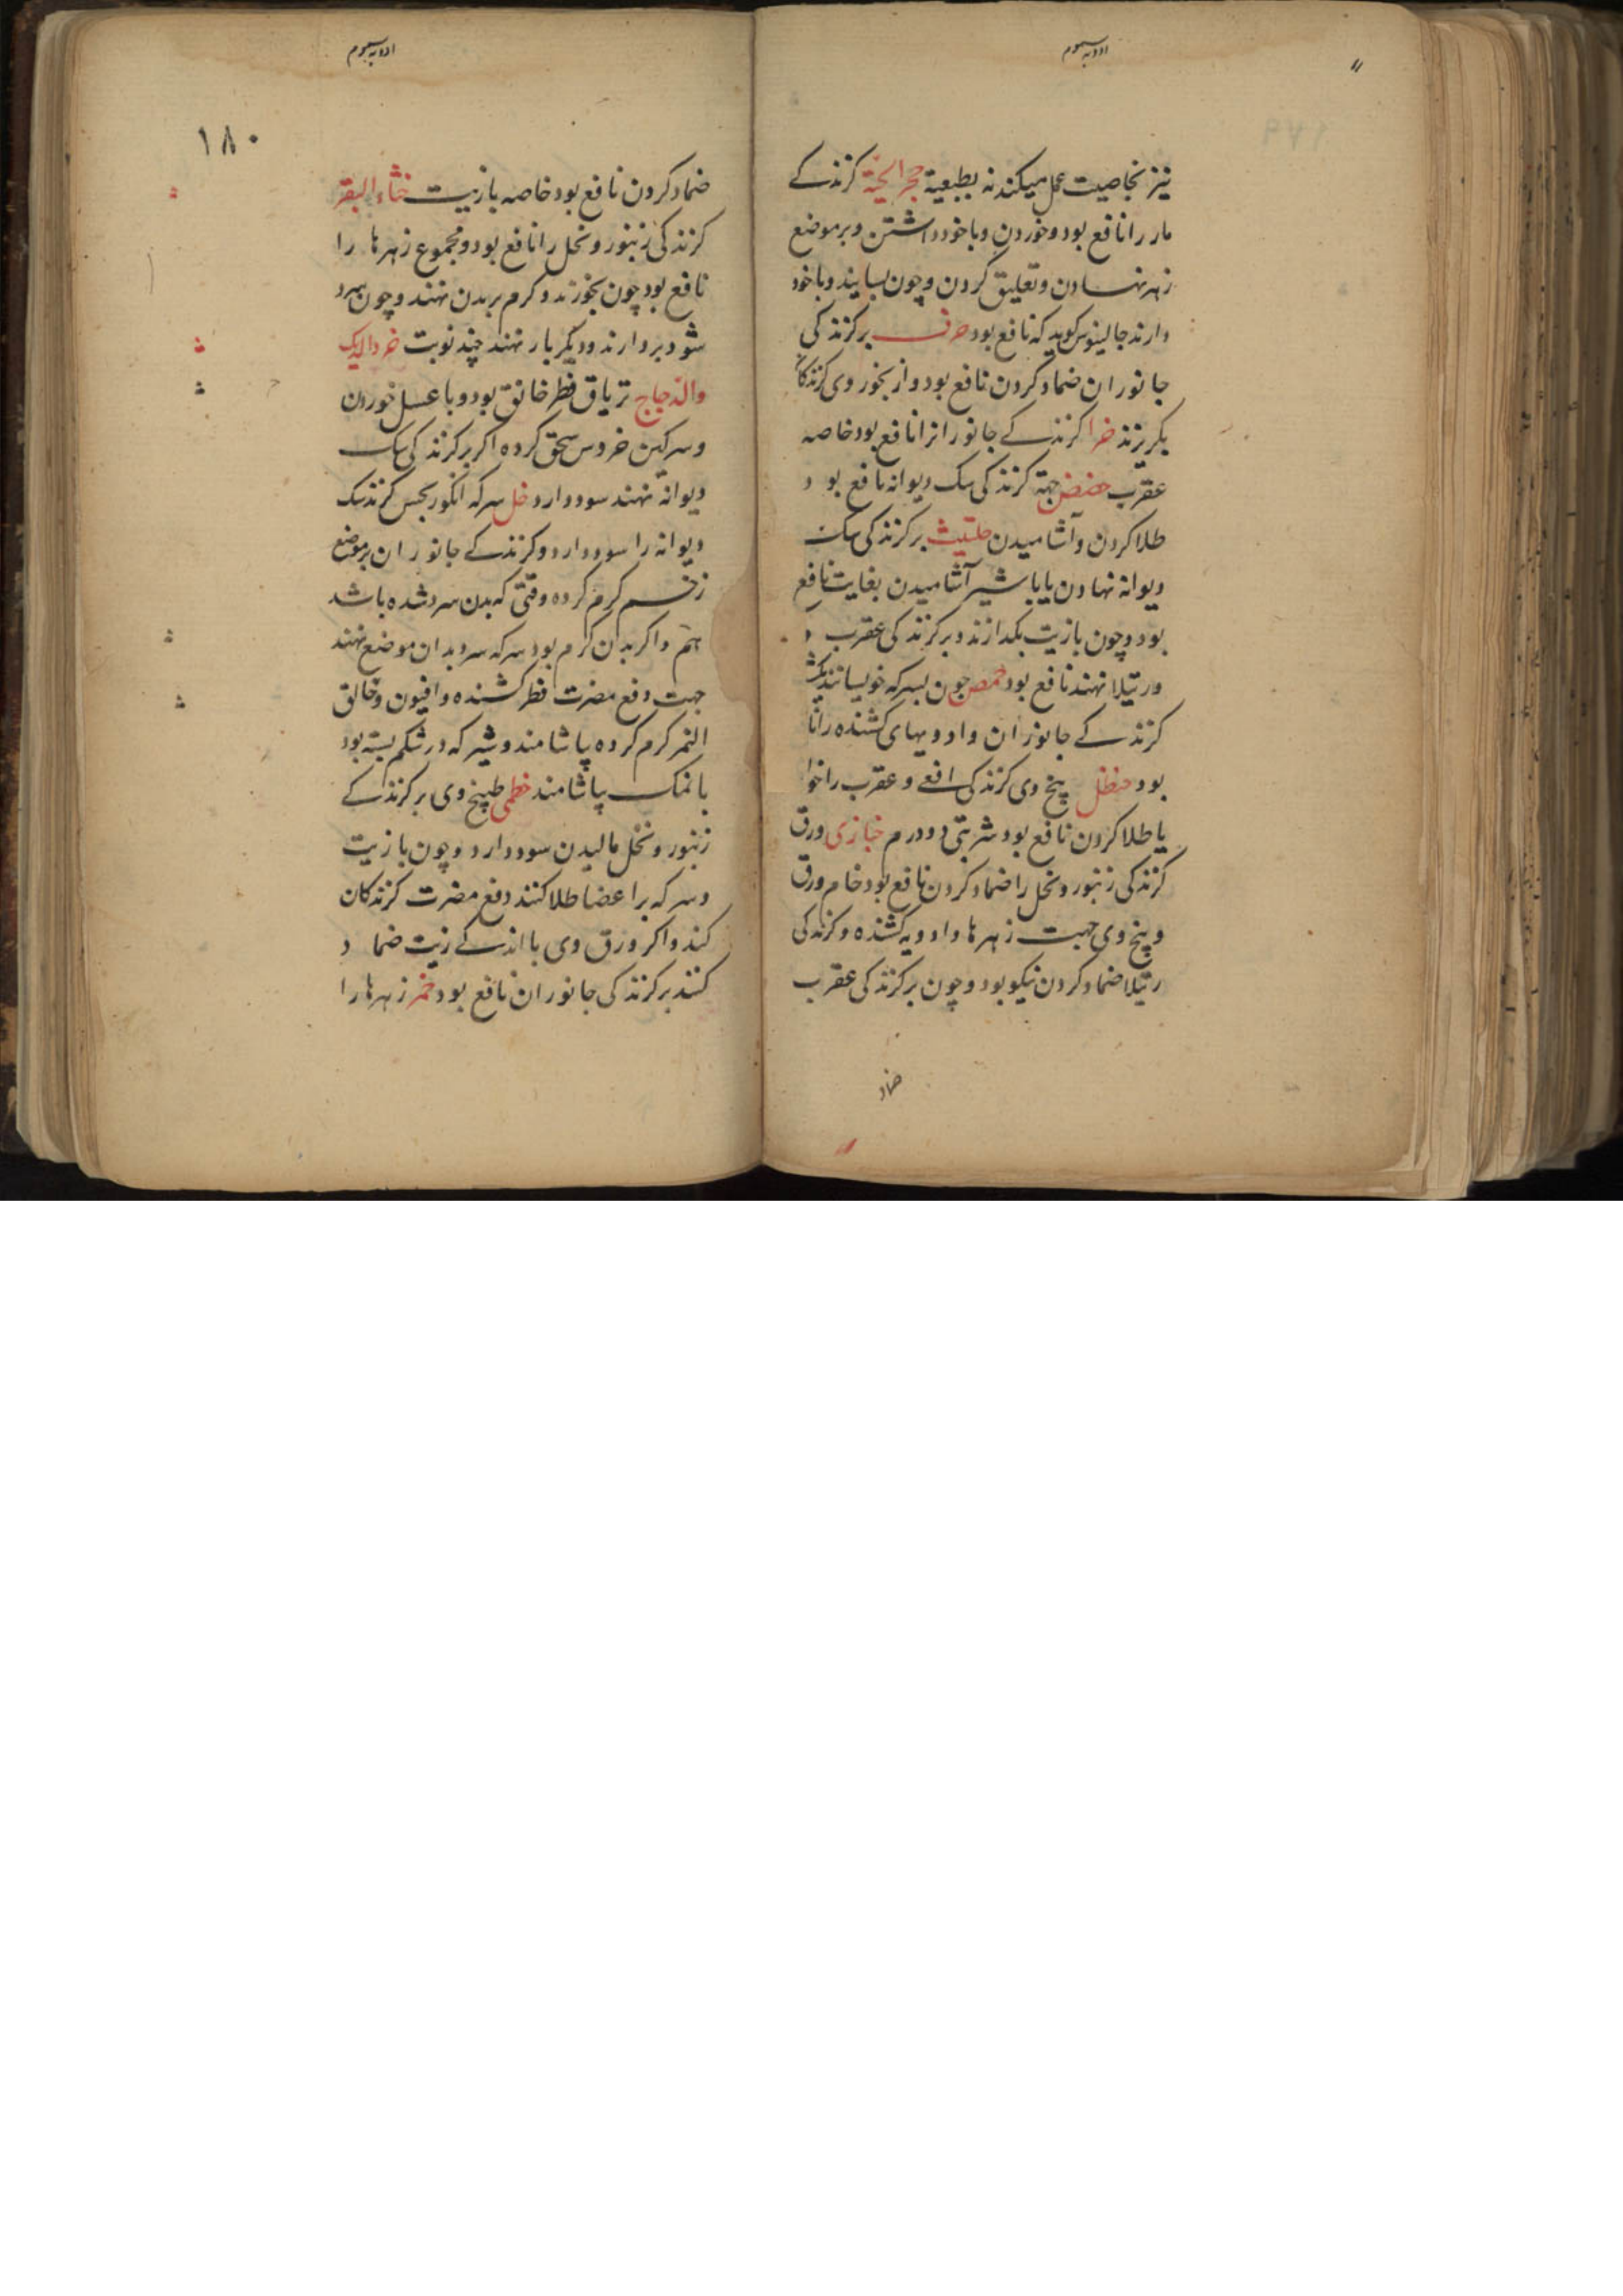 ادویه سموم
نیز بخاصیت عمل میکند نه بطبیعیة حجر الحیّة کزندکے
مار را نافع بود و خوردن و با خود داشتن و بر موضع
زهر نهادن و تعلیق کردن و چون بسایند و با خود
دارند جالینوس کوید که نافع بود حرف بر کزندکی
جانوران ضماد کردن نافع بود و از بخور وی کزندکان
بکریزند خرا کزندکے جانورانرا نافع بود خاصه
عقرب حضض جهة کزندکی سک دیوانه نافع بود
طلا کردن و آشامیدن حلتیث بر کزندکی سک
دیوانه نهادن یا با شیر آشامیدن بغایت نافع
بود و چون با زیت بکدازند و بر کزندکی عقرب و
رتیلا نهند نافع بود حمص چون بسرکه خویسانند
کزندکے جانوران و ادویهای کشنده را نا
بود حنظل بیخ وی کزندکی افعے و عقرب را خوا
یا طلا کردن نافع بود شربتی دو درم خبازی ورق
کزندکی زنبور و نحل را ضماد کردن نافع بود خام ورق
و بیخ وی جهت زهرها و ادویه کشنده و کزندکی
رتیلا ضماد کردن نیکو بود و چون بر کزندکی عقرب
ضماد
ادویه سموم
۱۸۰
ضماد کردن نافع بود خاصه با زیت خثاء البقر
کزندکی زنبور و نحل را نافع بود و مجموع زهرها را
نافع بود چون بخورند و کرم بر بدن نهند و چون سرد
شود بردارند و دیکر بار نهند چند نوبت خرو الدیک
والدجاج تریاق فطر خانق بود و با عسل خوردن
و سرکین خروس سحق کرده اکر بر کزندکی سک
دیوانه نهند سود دارد خل سرکه انکور بجس کزند سک
دیوانه را سود دارد و کزندکے جانوران بر موضع
زخم کرم کرده وقتی که بدن سرد شده باشد
هم و اکر بدن کرم بود سرکه سرد بدان موضع نهند
جهت دفع مضرت فطر کشنده و افیون و خالق
النمر کرم کرده بیاشامند و شیر که در شکم بسته بود
با نمک بیاشامند خطمی طبیخ وی بر کزندکے
زنبور و نحل مالیدن سود دارد و چون با زیت
و سرکه بر اعضا طلا کنند دفع مضرت کزندکان
کند و اکر ورق وی با اندکے زیت ضماد
کنند بر کزندکی جانوران نافع بود خمر زهرها را